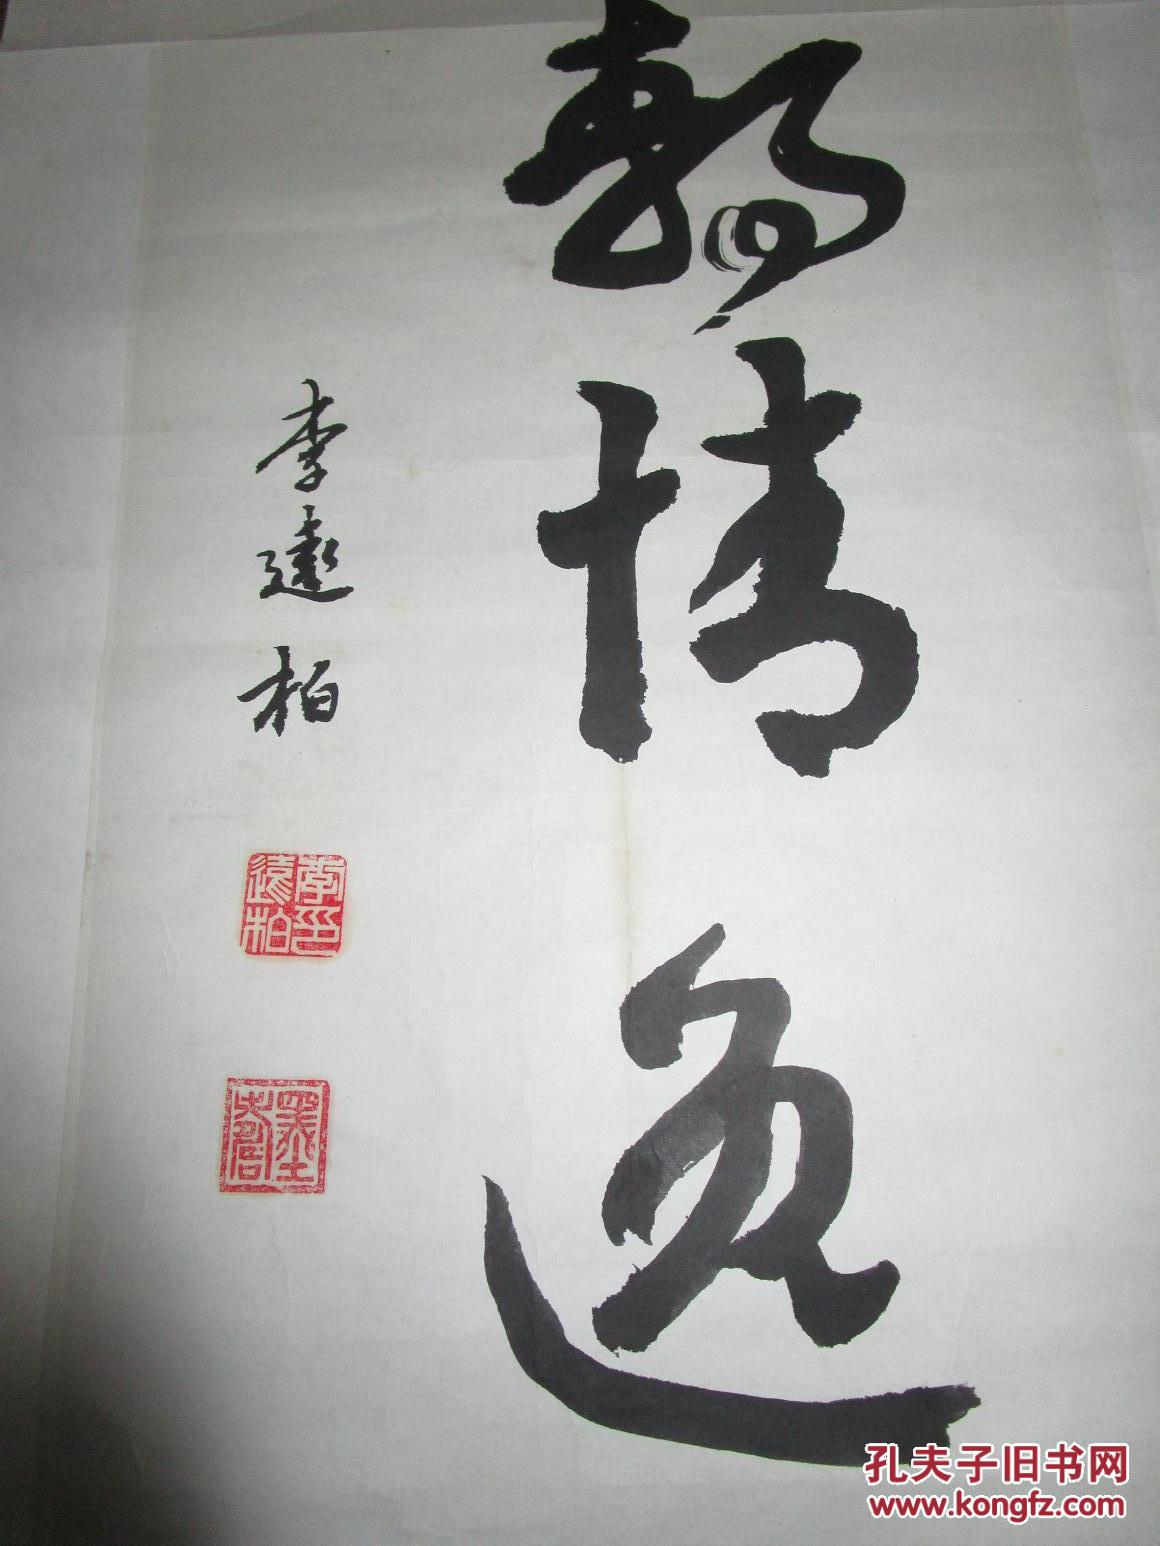 情逸
李遠柏
李印
遠柏
孔夫子旧书网
www.kongfz.com